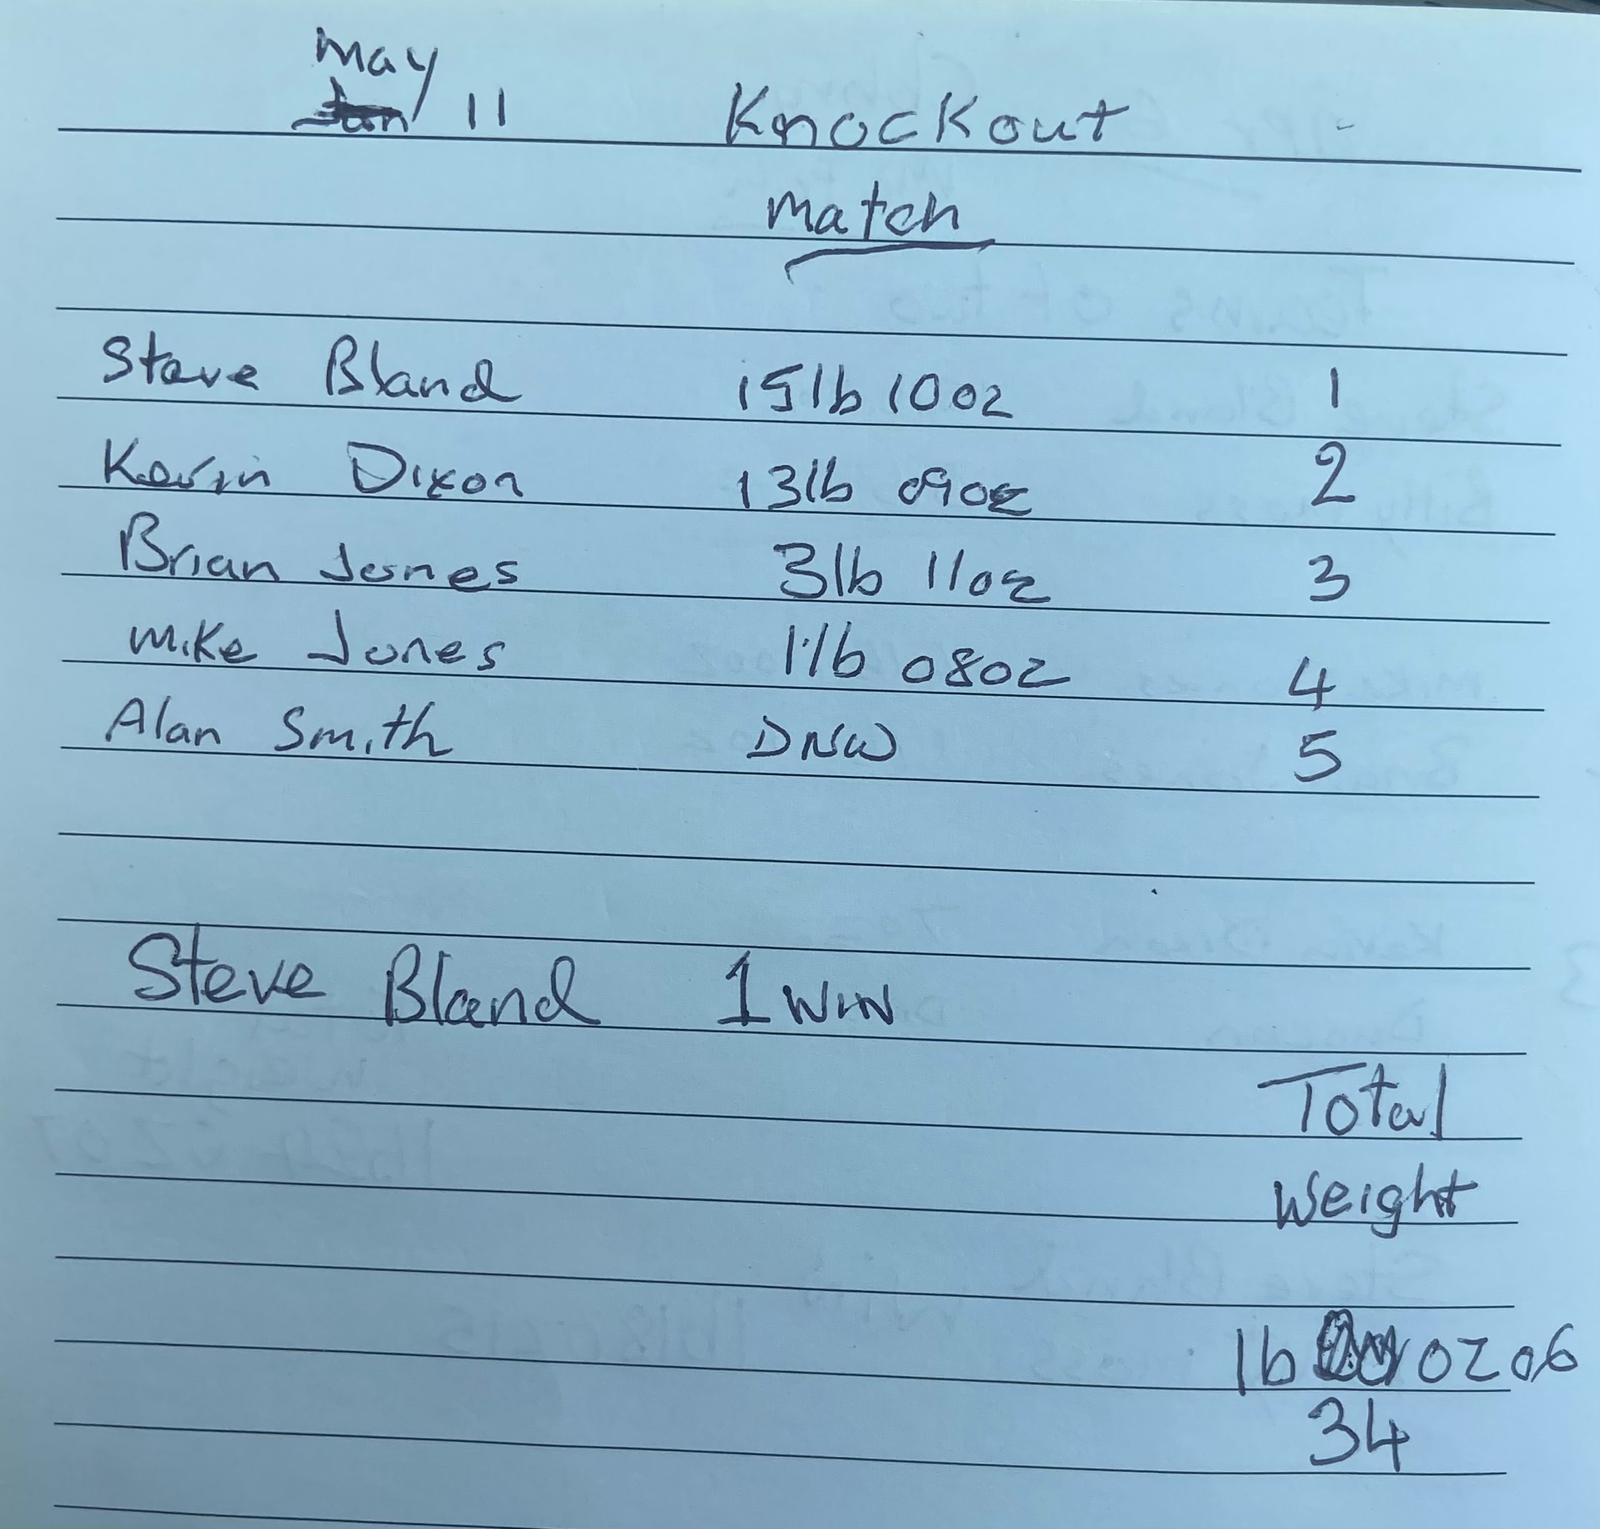 May
Jan/ 11 Knockout
Match
Steve Bland 15lb 10oz 1
Kevin Dixon 13lb 09oz 2
Brian Jones 3lb 11oz 3
Mike Jones 1lb 08oz 4
Alan Smith DNW 5
Steve Bland 1 WIN
Total
Weight
lb oz 06
34